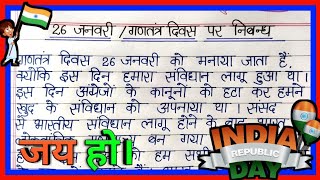 26 जनवरी / गणतंत्र दिवस पर निबन्ध
गणतंत्र दिवस 26 जनवरी को मनाया जाता है,
क्योंकि इस दिन हमारा संविधान लागू हुआ था।
इस दिन अंग्रेजों के कानूनों को हटा कर हमने
खुद के संविधान को अपनाया था। संसद
से भारतीय संविधान लागू होने के बाद
बन गया
को हम
जय हो।
INDIA
REPUBLIC
DAY